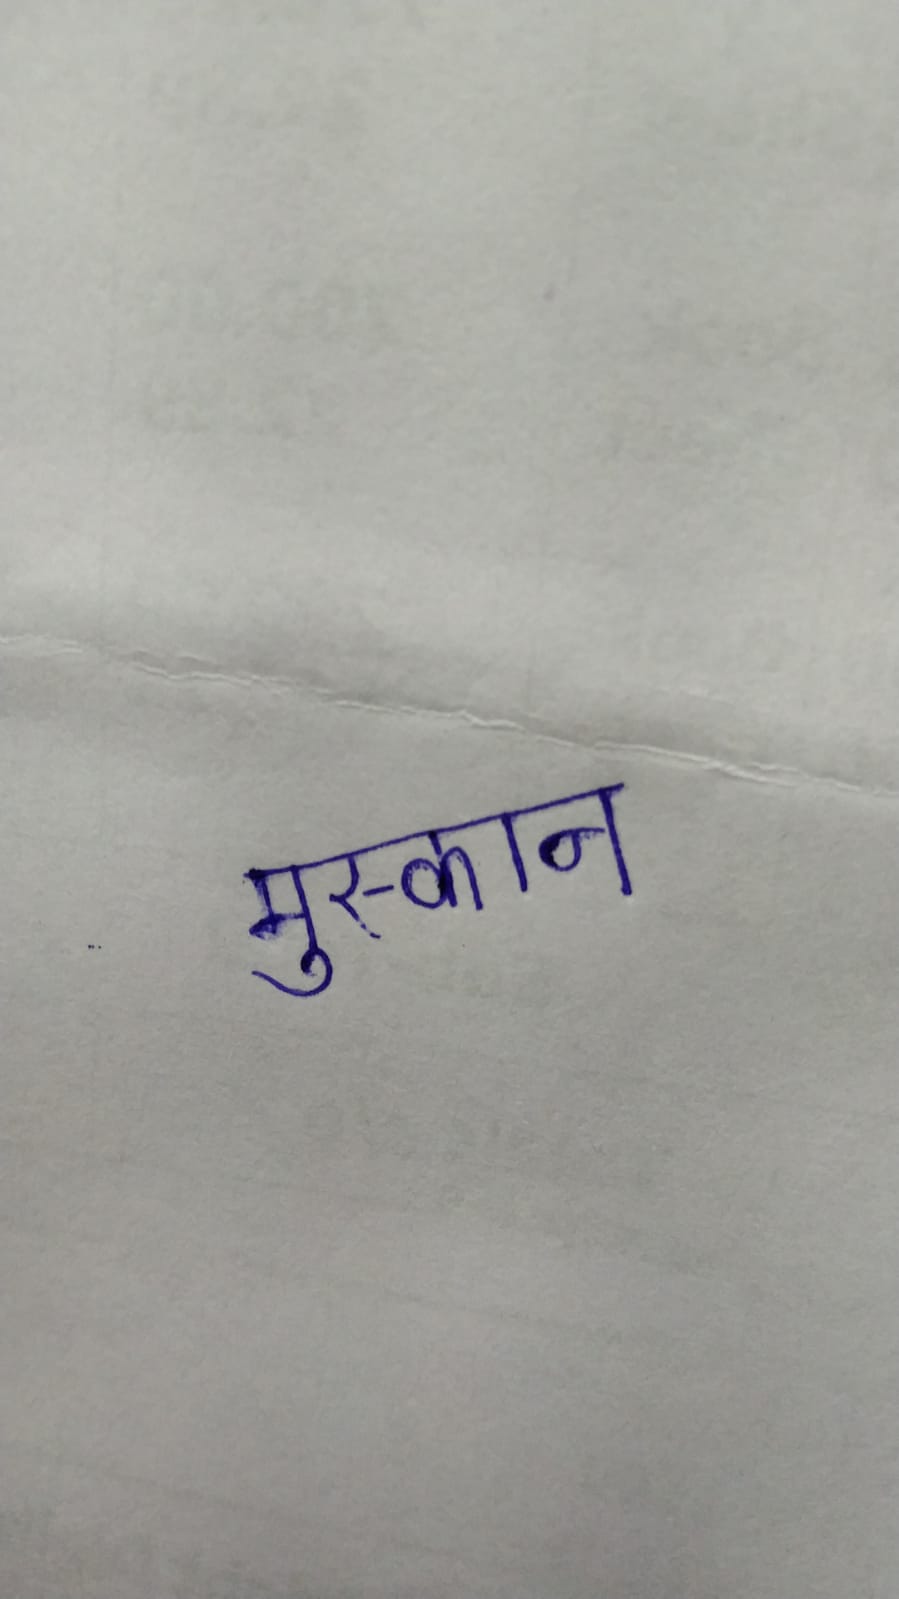 मुस्कान